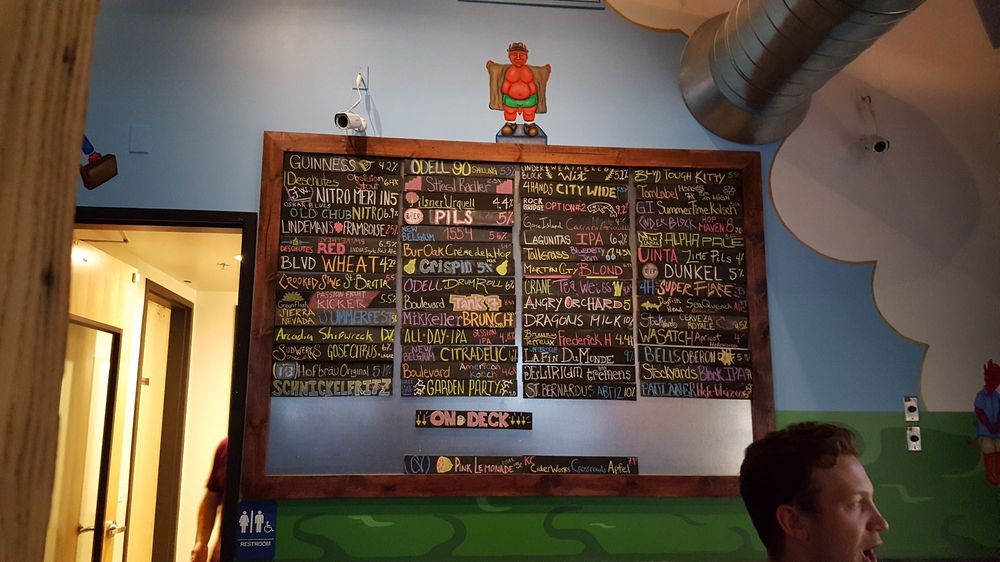 GUINNESS 4.2%
Deschutes Obsidian Stout 6.4
NITRO MERLIN 5
OSKAR BLUES OLD CHUB NITRO
LINDEMANS FRAMBOISE 2.5
DESCHUTES RED 6.5%
BLVD WHEAT 4.2
CROOKED STAVE ST BRETTA
PASSION FRUIT KICKER 5.5%
SIERRA NEVADA SUMMERFEST
Arcadia Shipwreck
SUDWERKS GOSE CITRUS
Hofbräu Original 5.1%
SCHNICKELFRITZ
ODELL 90 SHILLING 5.3%
Stiegl Radler
Pilsner Urquell 4.4%
PILS 5%
NEW BELGIUM 1554 5.6%
Bur Oak Crème de la Hop
Crispin 5%
ODELL DRUMROLL
Boulevard Tank 7
Mikkeller BRUNCH
ALL-DAY-IPA SESSION IPA
NEW BELGIUM CITRADELIC 6%
Boulevard American Kolsch
GARDEN PARTY
CINDER BLOCK WEATHERED Wit
4 HANDS CITY WIDE
ROCK BRIDGE OPTION #2
Goose Island
LAGUNITAS IPA 6.2
Tallgrass Blueberry
MARTIN CITY BLOND
CRANE Tea Weiss
ANGRY ORCHARD 5
DRAGONS MILK
Frederick H 4.4
LA FIN DU MONDE
DELIRIUM Tremens
ST. BERNARDUS ABT 12
TOUGH KITTY
Torn Label
GI Summertime Kolsch
CINDER BLOCK HOP MAVEN
ALPHA PALE
UINTA Lime Pils 4
DUNKEL 5%
4H SUPER FLARE
Dogfish Head SeaQuench
Stockyards CERVEZA ROYALE
WASATCH Apricot
BELLS OBERON
Stockyards Black IPA
PAULANER Hefe Weizen
ON DECK
PINK LEMONADE KC CiderWorks Crossroads Apfel
RESTROOM